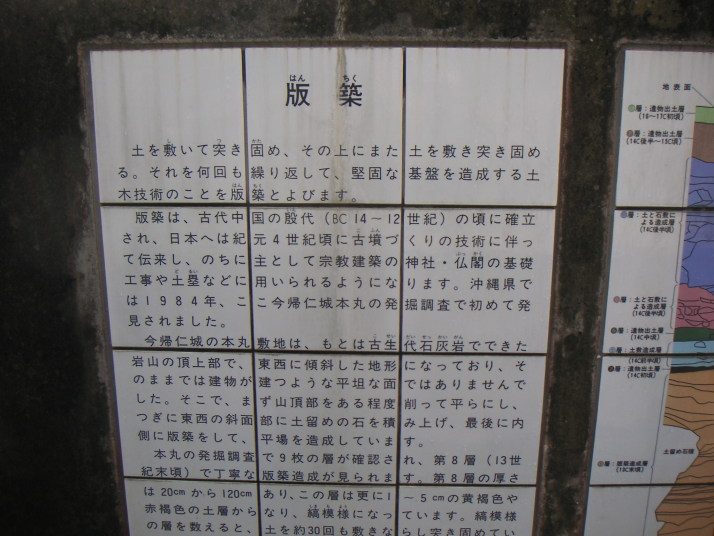 版築
はん ちく
土を敷いて突き固め、その上にまた土を敷き突き固め
る。それを何回も繰り返して、堅固な基盤を造成する土
木技術のことを版築とよびます。
版築は、古代中国の殷代（BC 14～12世紀）の頃に確立
され、日本へは紀元4世紀頃に古墳づくりの技術に伴っ
て伝来し、のちに主として宗教建築の神社・仏閣の基礎
工事や土塁などに用いられるようになります。沖縄県で
は1984年、ここ今帰仁城本丸の発掘調査で初めて発
見されました。
今帰仁城の本丸敷地は、もとは古生代石灰岩でできた
岩山の頂上部で、東西に傾斜した地形になっており、そ
のままでは建物が建つような平坦な面ではありませんで
した。そこで、まず山頂部をある程度削って平らにし、
つぎに東西の斜面部に土留めの石を積み上げ、最後に内
側に版築をして、平場を造成しています。
本丸の発掘調査で9枚の層が確認され、第8層（13世
紀末頃）で丁寧な版築造成が見られます。第8層の厚さ
は20cmから120cmあり、この層は更に1～5cmの黄褐色や
赤褐色の土層からなり、縞模様になっています。縞模様
の層を数えると、土を約30回も敷きならし突き固めてい
地表面
層：遺物出土層
（16～17C初頃）
層：遺物出土層
（14C後半～15C頃）
層：土と石敷に
よる造成層
（14C後半頃）
層：土と石敷に
よる造成層
（14C後半頃）
層：遺物出土層
（14C中頃）
層：土敷造成層
（14C前半頃）
層：遺物出土層
（14C初頃）
土留め石積
層：版築造成層
（13C末頃）